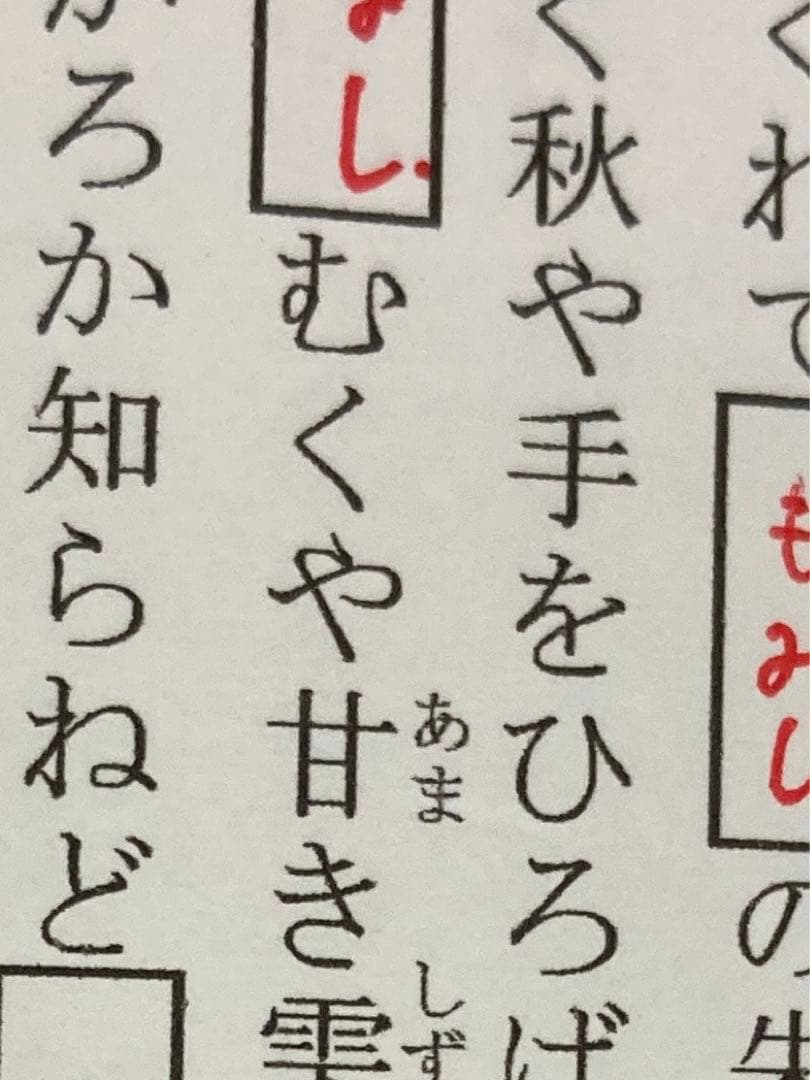 くれて もみし の先
く秋や手をひろげ
よし むくや甘き雫
あま しず
がろか知らねど